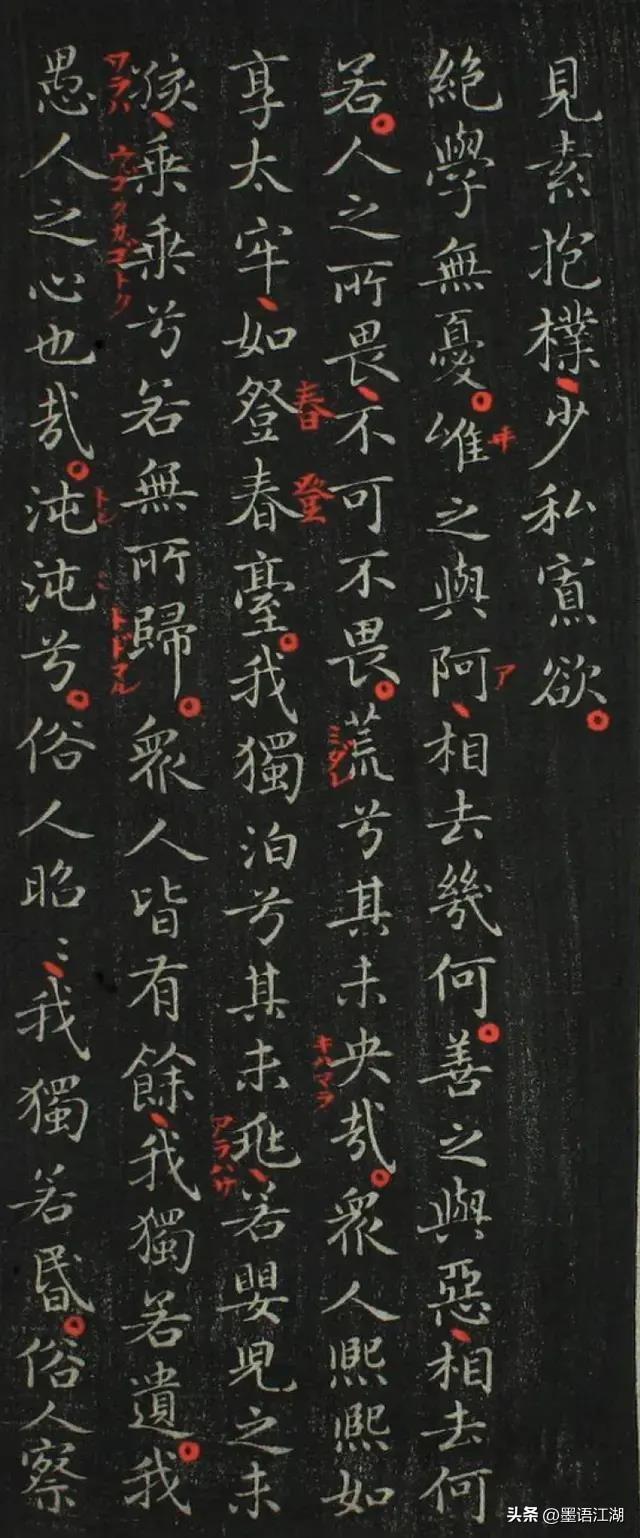 見素抱樸、少私寡欲。
絕學無憂。唯之與阿、相去幾何。善之與惡、相去何
ヰ
ア
若。人之所畏、不可不畏。荒兮其未央哉。衆人熙熙如
春登
ミダレ
キハマラ
享太牢、如登春臺。我獨泊兮其未兆、若嬰兒之未
アラハサ
孩、乗乗兮若無所歸。衆人皆有餘、我獨若遺。我
ワラハ
トドマル
愚人之心也哉。沌沌兮。俗人昭〻、我獨若昏。俗人察
头条 @墨语江湖